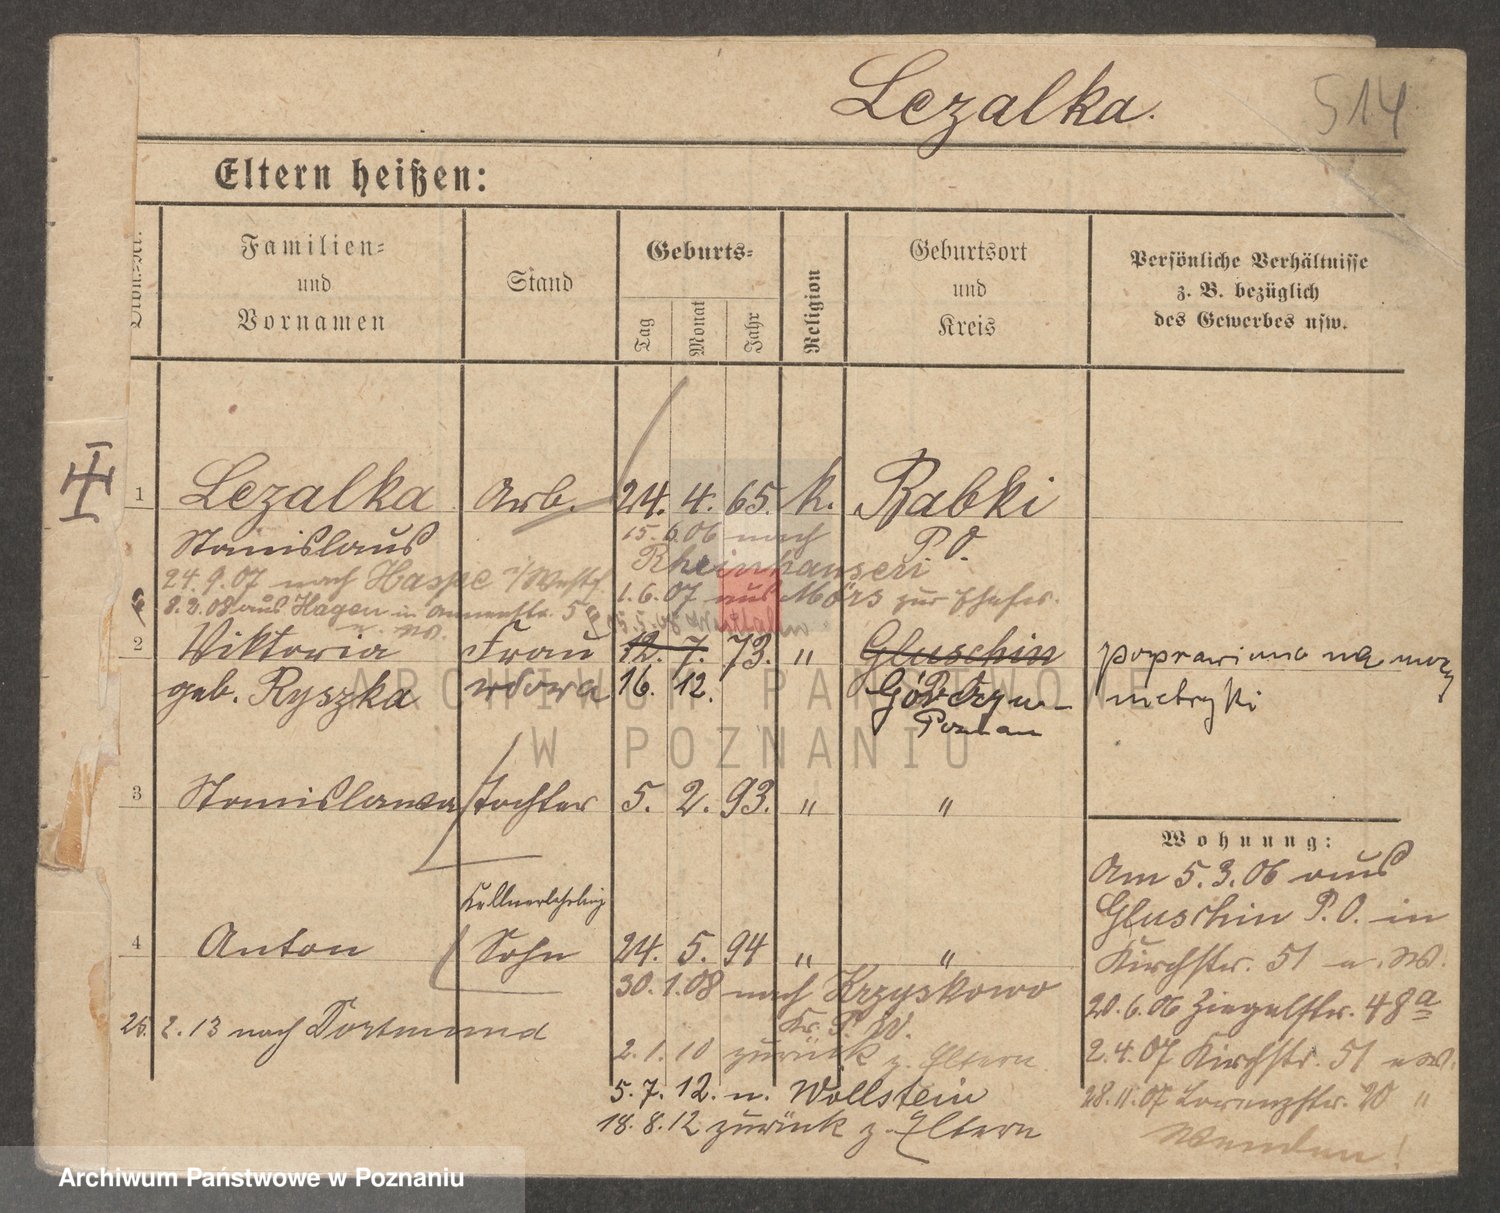 Lezalka.
514
Eltern heißen:
Familien-
und
Vornamen
Stand
Geburts-
Tag
Monat
Jahr
Religion
Geburtsort
und
Kreis
Persönliche Verhältnisse
z. B. bezüglich
des Gewerbes usw.
1 Lezalka Arb. 24. 4. 65. k. Babki
Stanislaus 15. 6. 06 nach P. O.
Rheinhausen
24. 9. 07 nach Haspe i/Westf. 1. 6. 07 aus Mörs zur Ehefr.
8. 9. 08 aus Hagen in
2 Viktoria Frau 12. 7. 73. " Gluschin poprawiono na mocy
geb. Ryszka wdowa 16. 12. metryki
Poznan
3 Stanislawa Tochter 5. 2. 93. " "
Wohnung:
Am 5. 3. 06 aus
Gluschin P. O. in
Kellnerlehrling
4 Anton Sohn 24. 5. 94 " "
Kirchstr. 51 u. W.
30. 1. 08 nach Krzyskowo
Kr. P. W.
20. 6. 06 Ziegelstr. 48a
26. 2. 13 nach Dortmund
2. 1. 10 zurück z. Eltern.
2. 4. 07 Kirchstr. 51 u W.
5. 7. 12. n. Wollstein
28. 11. 07 Lorenzstr. 20 "
18. 8. 12 zurück z. Eltern
Wenden!
ARCHIWUM PAŃSTWOWE
W POZNANIU
Archiwum Państwowe w Poznaniu